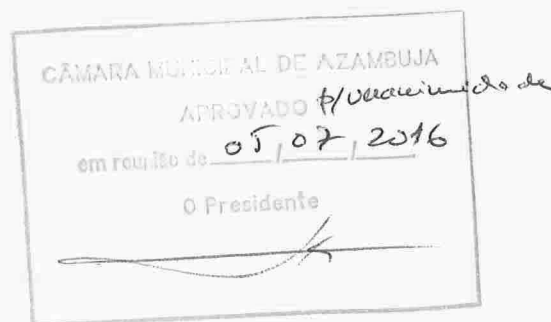 CÂMARA MUNICIPAL DE AZAMBUJA
APROVADO p/ unanimidade
em reunião de 05 / 07 / 2016
O Presidente